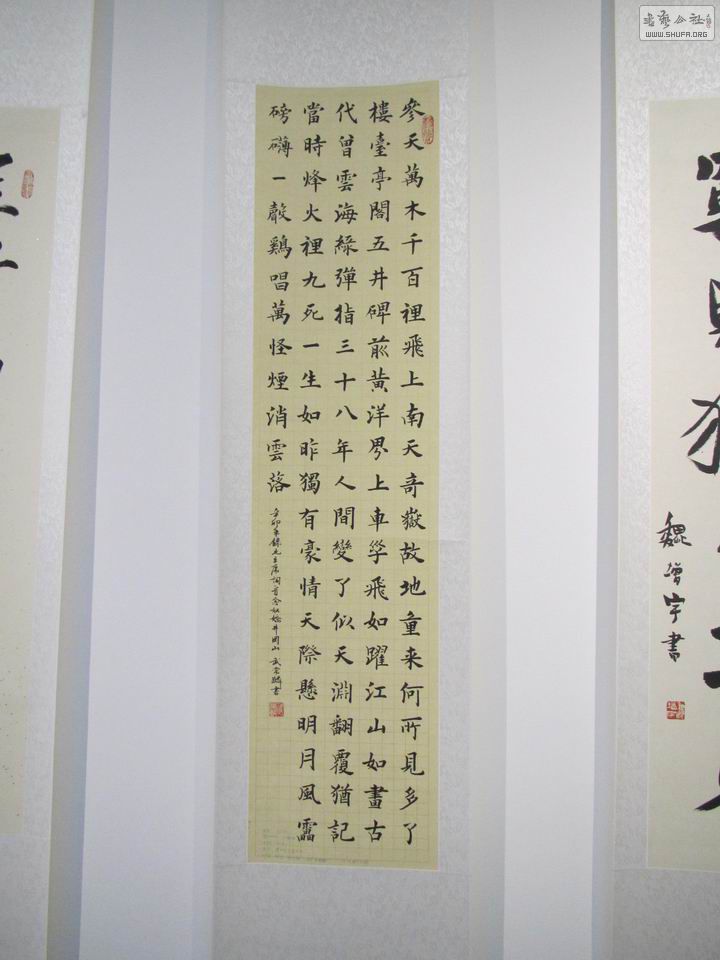 書藝公社
WWW.SHUFA.ORG
參天萬木千百裡飛上南天奇嶽故地重来何所見多了
樓臺亭閣五井碑前黃洋界上車飛如躍江山如畫古
代曾雲海綠彈指三十八年人間變了似天淵翻覆猶記
當時烽火裡九死一生如昨獨有豪情天際懸明月風靁
磅礴一聲鷄唱萬怪煙消雲落
辛卯年錄毛主席詞首念奴嬌井岡山
書
魏曾宇書